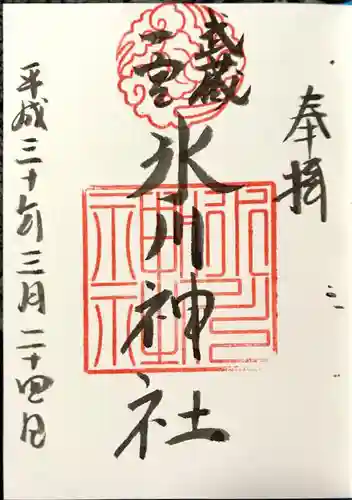 奉拝
武蔵
一宮
氷川神社
平成三十年三月二十四日
氷川
神社